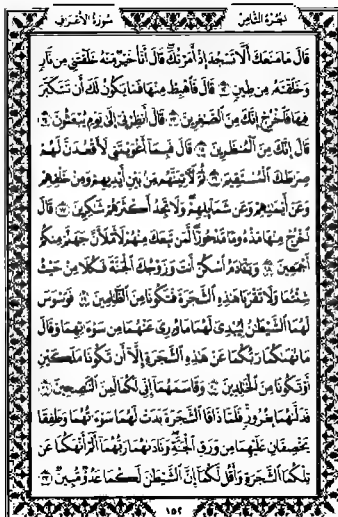 الجزء الثامن سورة الأعراف
قَالَ مَا مَنَعَكَ أَلَّا تَسْجُدَ إِذْ أَمَرْتُكَ قَالَ أَنَا خَيْرٌ مِّنْهُ خَلَقْتَنِي مِن نَّارٍ
وَخَلَقْتَهُ مِن طِينٍ ١٢ قَالَ فَاهْبِطْ مِنْهَا فَمَا يَكُونُ لَكَ أَن تَتَكَبَّرَ
فِيهَا فَاخْرُجْ إِنَّكَ مِنَ الصَّاغِرِينَ ١٣ قَالَ أَنظِرْنِي إِلَى يَوْمِ يُبْعَثُونَ ١٤
قَالَ إِنَّكَ مِنَ الْمُنظَرِينَ ١٥ قَالَ فَبِمَا أَغْوَيْتَنِي لَأَقْعُدَنَّ لَهُمْ
صِرَاطَكَ الْمُسْتَقِيمَ ١٦ ثُمَّ لَآتِيَنَّهُم مِّن بَيْنِ أَيْدِيهِمْ وَمِنْ خَلْفِهِمْ
وَعَنْ أَيْمَانِهِمْ وَعَن شَمَائِلِهِمْ وَلَا تَجِدُ أَكْثَرَهُمْ شَاكِرِينَ ١٧ قَالَ
اخْرُجْ مِنْهَا مَذْءُومًا مَّدْحُورًا لَّمَن تَبِعَكَ مِنْهُمْ لَأَمْلَأَنَّ جَهَنَّمَ مِنكُمْ
أَجْمَعِينَ ١٨ وَيَا آدَمُ اسْكُنْ أَنتَ وَزَوْجُكَ الْجَنَّةَ فَكُلَا مِنْ حَيْثُ
شِئْتُمَا وَلَا تَقْرَبَا هَذِهِ الشَّجَرَةَ فَتَكُونَا مِنَ الظَّالِمِينَ ١٩ فَوَسْوَسَ
لَهُمَا الشَّيْطَانُ لِيُبْدِيَ لَهُمَا مَا وُورِيَ عَنْهُمَا مِن سَوْءَاتِهِمَا وَقَالَ
مَا نَهَاكُمَا رَبُّكُمَا عَنْ هَذِهِ الشَّجَرَةِ إِلَّا أَن تَكُونَا مَلَكَيْنِ
أَوْ تَكُونَا مِنَ الْخَالِدِينَ ٢٠ وَقَاسَمَهُمَا إِنِّي لَكُمَا لَمِنَ النَّاصِحِينَ ٢١
فَدَلَّاهُمَا بِغُرُورٍ فَلَمَّا ذَاقَا الشَّجَرَةَ بَدَتْ لَهُمَا سَوْءَاتُهُمَا وَطَفِقَا
يَخْصِفَانِ عَلَيْهِمَا مِن وَرَقِ الْجَنَّةِ وَنَادَاهُمَا رَبُّهُمَا أَلَمْ أَنْهَكُمَا عَن
تِلْكُمَا الشَّجَرَةِ وَأَقُل لَّكُمَا إِنَّ الشَّيْطَانَ لَكُمَا عَدُوٌّ مُّبِينٌ ٢٢
١٥٢